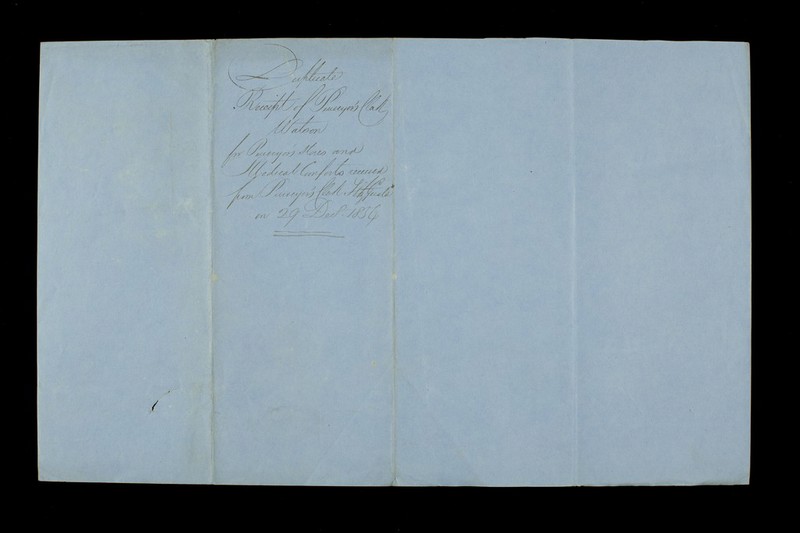 Duplicate
Receipt of Purveyor's Clerk
Watson
for Purveyor's Stores and
Medical Comforts received
from Purveyor's Clerk
on 29 Decr 1854